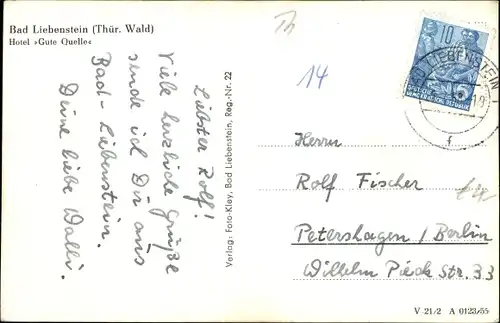 Bad Liebenstein (Thür. Wald)
Hotel »Gute Quelle«
Liebster Rolf!
Viele herzliche Grüße
sende ich Dir aus
Bad-Liebenstein.
Deine liebe Walli.
Verlag: Foto-Kley, Bad Liebenstein, Reg.-Nr. 22
Th
14
10
DEUTSCHE
DEMOKRATISCHE REPUBLIK
LIEBENSTEIN
f
Herrn
Rolf Fischer
Petershagen/Berlin
Wilhelm Pieck Str. 33
V 21/2 A 0123/55